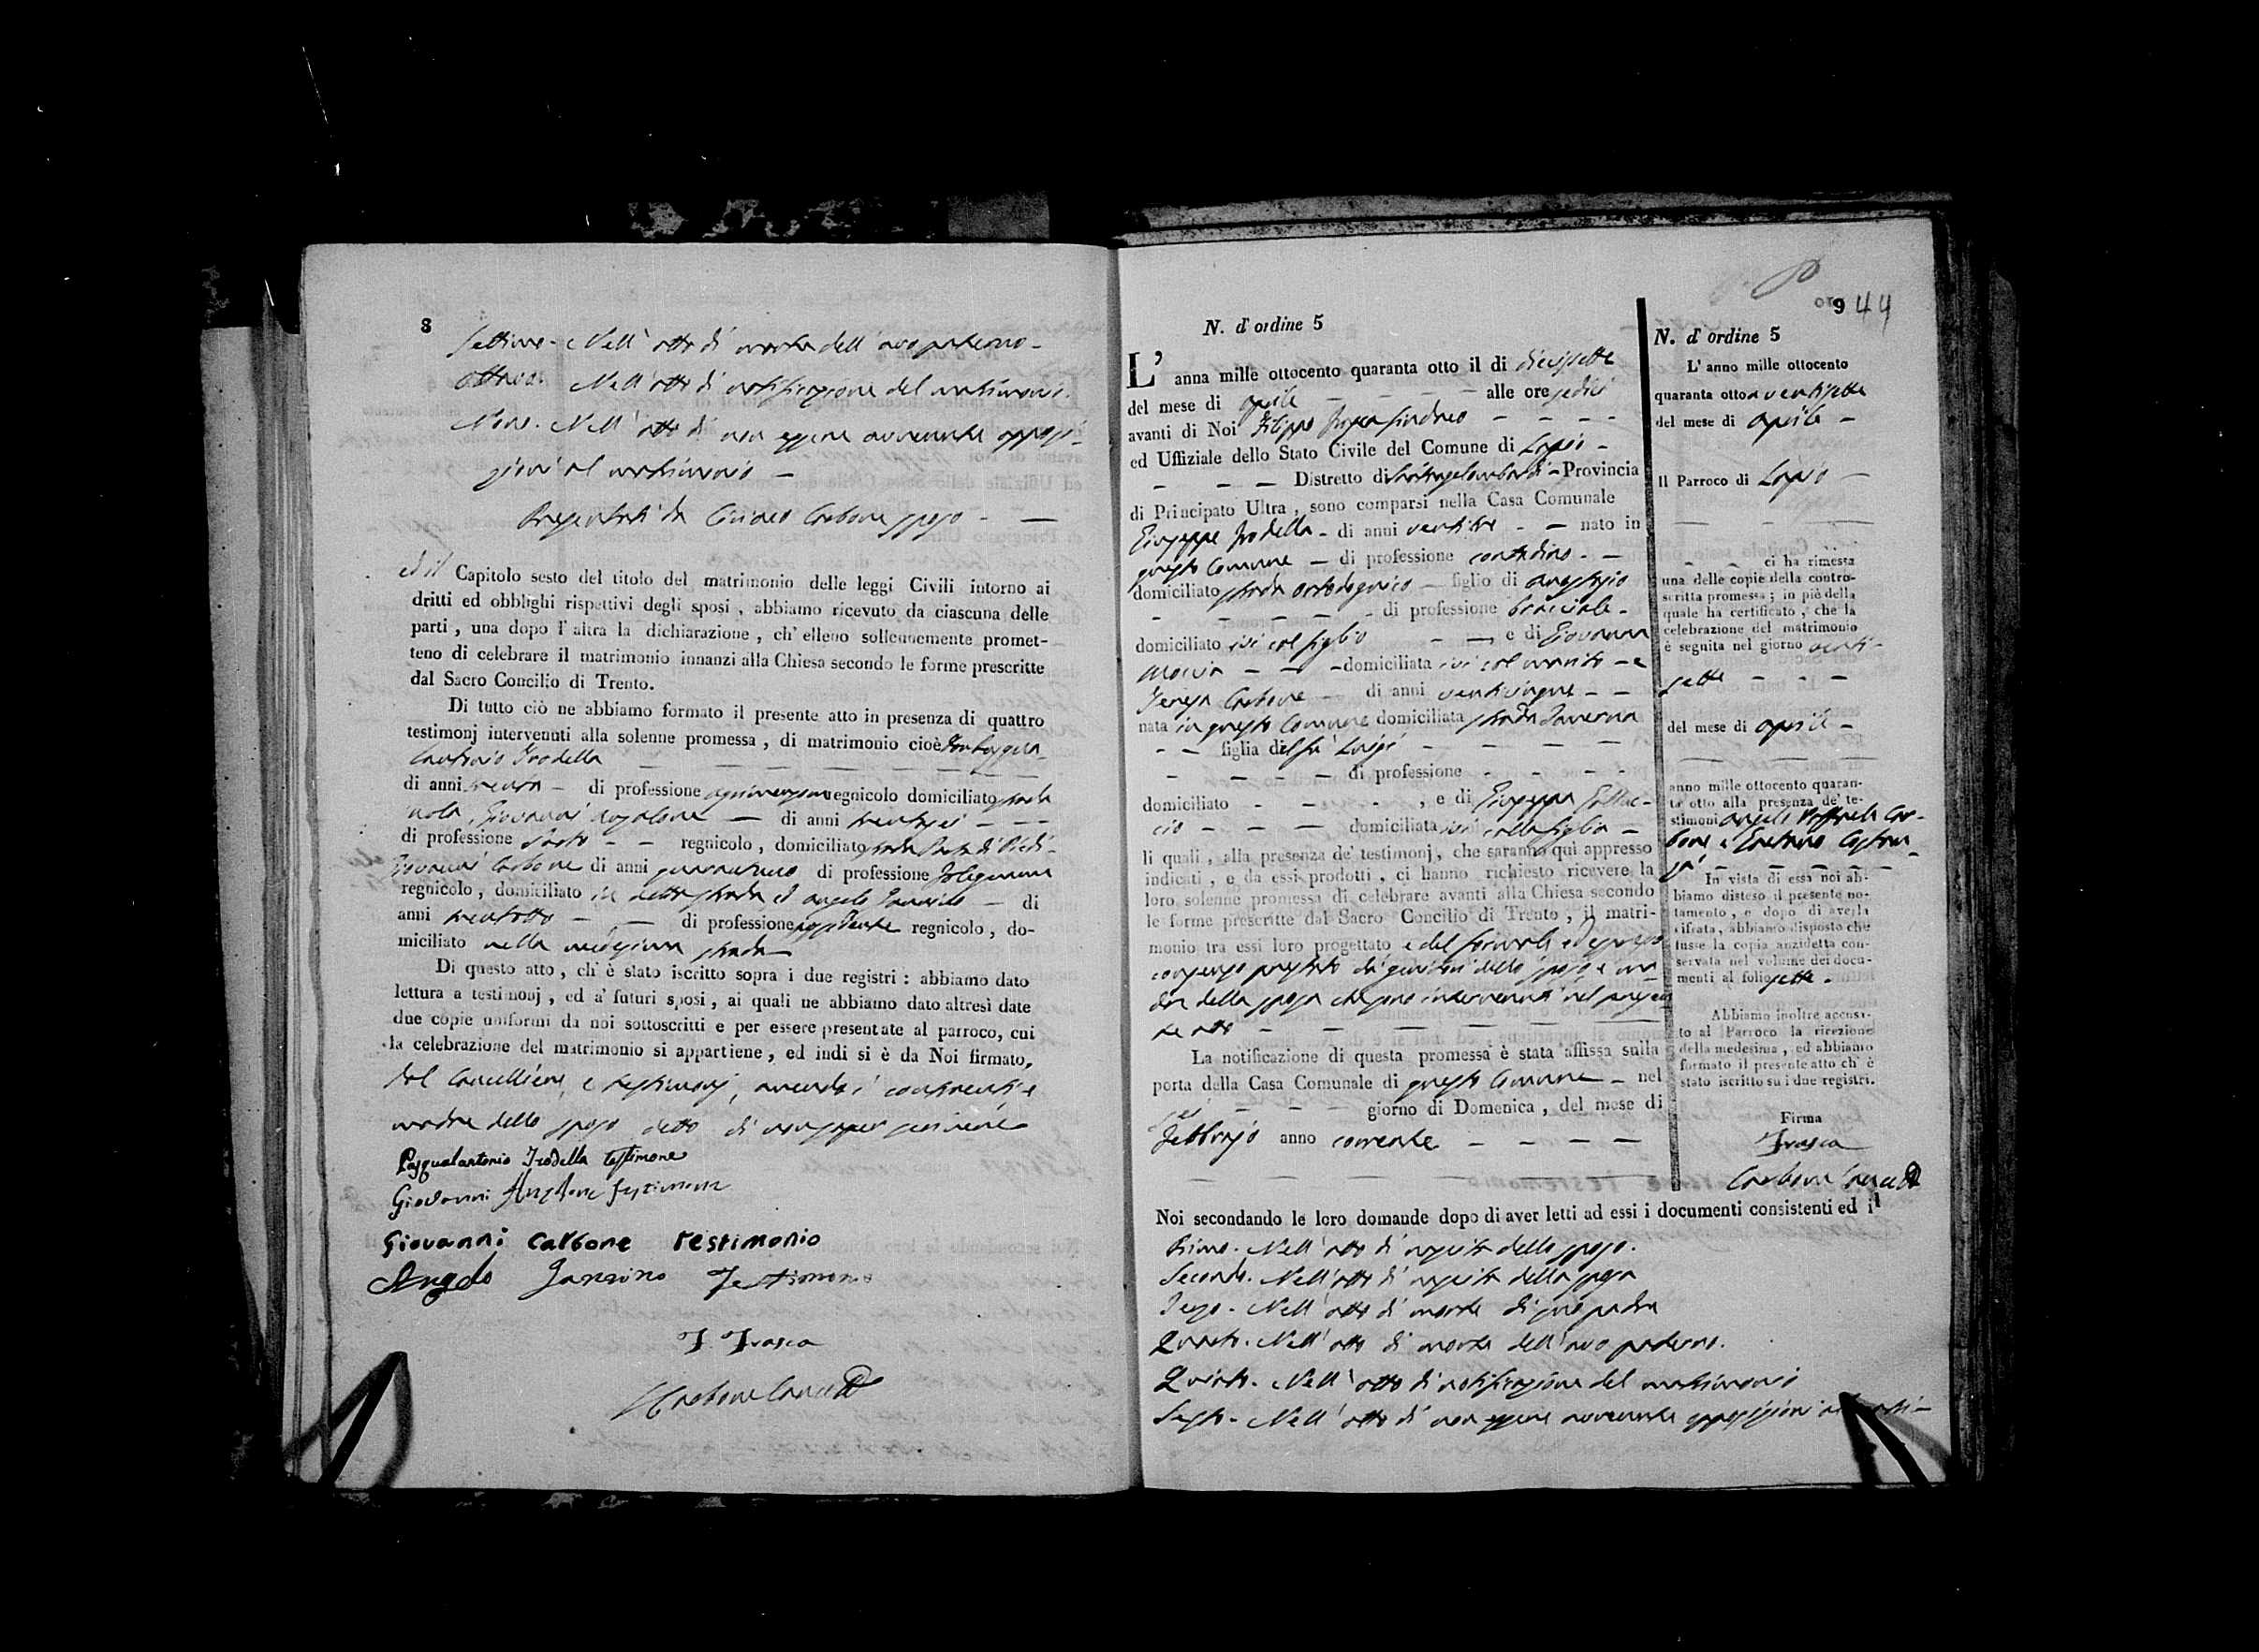 8
Settimo. Nell' atto di morte dell' avo paterno -
Ottavo. Nell' atto di notificazione del matrimonio.
Nono. Nell' atto di non essere avvenute opposi-
zioni al matrimonio -
Presentati da Ciriaco Carbone sposo - —
ed il Capitolo sesto del titolo del matrimonio delle leggi Civili intorno ai
dritti ed obblighi rispettivi degli sposi , abbiamo ricevuto da ciascuna delle
parti , una dopo l' altra la dichiarazione , ch' elleno sollennemente promet-
teno di celebrare il matrimonio innanzi alla Chiesa secondo le forme prescritte
dal Sacro Concilio di Trento.
Di tutto ciò ne abbiamo formato il presente atto in presenza di quattro
testimonj intervenuti alla solenne promessa , di matrimonio cioè
Trodella
di anni trenta - di professione regnicolo domiciliato strada
Giovanni Angelone — di anni trentasei - - -
di professione Sarto - - regnicolo , domiciliato strada Porta di Piedi-
Giovanni Carbone di anni di professione Falegname
regnicolo , domiciliato in detta strada ed Angelo Iannino - di
anni trentotto - - di professione regnicolo , do-
miciliato nella medesima strada
Di questo atto , ch' è stato iscritto sopra i due registri : abbiamo dato
lettura a testimonj , ed a' futuri sposi , ai quali ne abbiamo dato altresì date
due copie uniformi da noi sottoscritti e per essere presentate al parroco, cui
la celebrazione del matrimonio si appartiene , ed indi si è da Noi firmato,
dal Cancelliere, e testimonj, avendo i contraenti e
madre dello sposo detto di non saper scrivere
Pasqualantonio Trodella testimone
Giovanni Angelone testimone
Giovanni Carbone testimonio
Angelo Jannino Testimonio
F. Frasca
Carbone Canc.
9 44
N. d' ordine 5
L' anna mille ottocento quaranta otto il di diecissette
del mese di aprile - - - - alle ore sedici
avanti di Noi Filippo Frasca Sindaco - - - -
ed Uffiziale dello Stato Civile del Comune di Lapio -
- - - Distretto di Santangelolombardi - Provincia
di Principato Ultra , sono comparsi nella Casa Comunale
Giuseppe Trodella - di anni ventitre - - nato in
questo Comune - di professione contadino - -
domiciliato strada - figlio di Anastasio
- - - - - di professione bracciale -
domiciliato ivi col figlio - — , e di Giovanna
Moccia - - - domiciliata ivi col marito - e
Teresa Carbone - di anni venticinque - -
nata in questo Comune domiciliata strada Taverna
- - figlia del fu Luigi - - - - -
- - - - di professione - - - -
domiciliato - - - , e di Giuseppa Galluc-
cio - - - domiciliata ivi colla figlia -
li quali , alla presenza de' testimonj , che saranno qui appresso
indicati , e da essi prodotti , ci hanno richiesto ricevere la
loro solenne promessa di celebrare avanti alla Chiesa secondo
le forme prescritte dal Sacro Concilio di Trento , il matri-
monio tra essi loro progettato e del formale ed espresso
consenso prestato da' genitori dello sposo, e ma-
dre della sposa che sono intervenuti nel presen
te atto - — — — — —
La notificazione di questa promessa è stata affissa sulla
porta della Casa Comunale di questo Comune - nel
- - - giorno di Domenica , del mese di
Febbrajo anno corrente - - - -
Noi secondando le loro domande dopo di aver letti ad essi i documenti consistenti ed il
Primo. Nell' atto di nascita dello sposo.
Secondo. Nell' atto di nascita della sposa
Terzo. Nell' atto di morte di suo padre
Quarto. Nell' atto di morte dell' avo paterno.
Quinto. Nell' atto di notificazione del matrimonio
Sesto. Nell' atto di non essere avvenute opposizioni al matri-
N. d' ordine 5
L' anno mille ottocento
quaranta otto a ventisette
del mese di aprile -
Il Parroco di Lapio -
- - ci ha rimessa
una delle copie della contro-
scritta promessa ; in piè della
quale ha certificato , che la
celebrazione del matrimonio
è segnita nel giorno venti-
sette - - -
del mese di aprile -
anno mille ottocento quaran-
ta otto alla presenza de' te-
stimoni Angelo Raffaele Car-
bone e Gaetano
In vista di essa noi ab-
biamo disteso il presente no-
tamento , e dopo di averla
cifrata , abbiamo disposto che
fusse la copia anzidetta con-
servata nel volume dei docu-
menti al folio sette.
Abbiamo inoltre accusa-
to al Parroco la ricezione
della medesima , ed abbiamo
formato il presente atto ch' è
stato iscritto su i due registri.
Firma
Frasca
Carbone Canc.